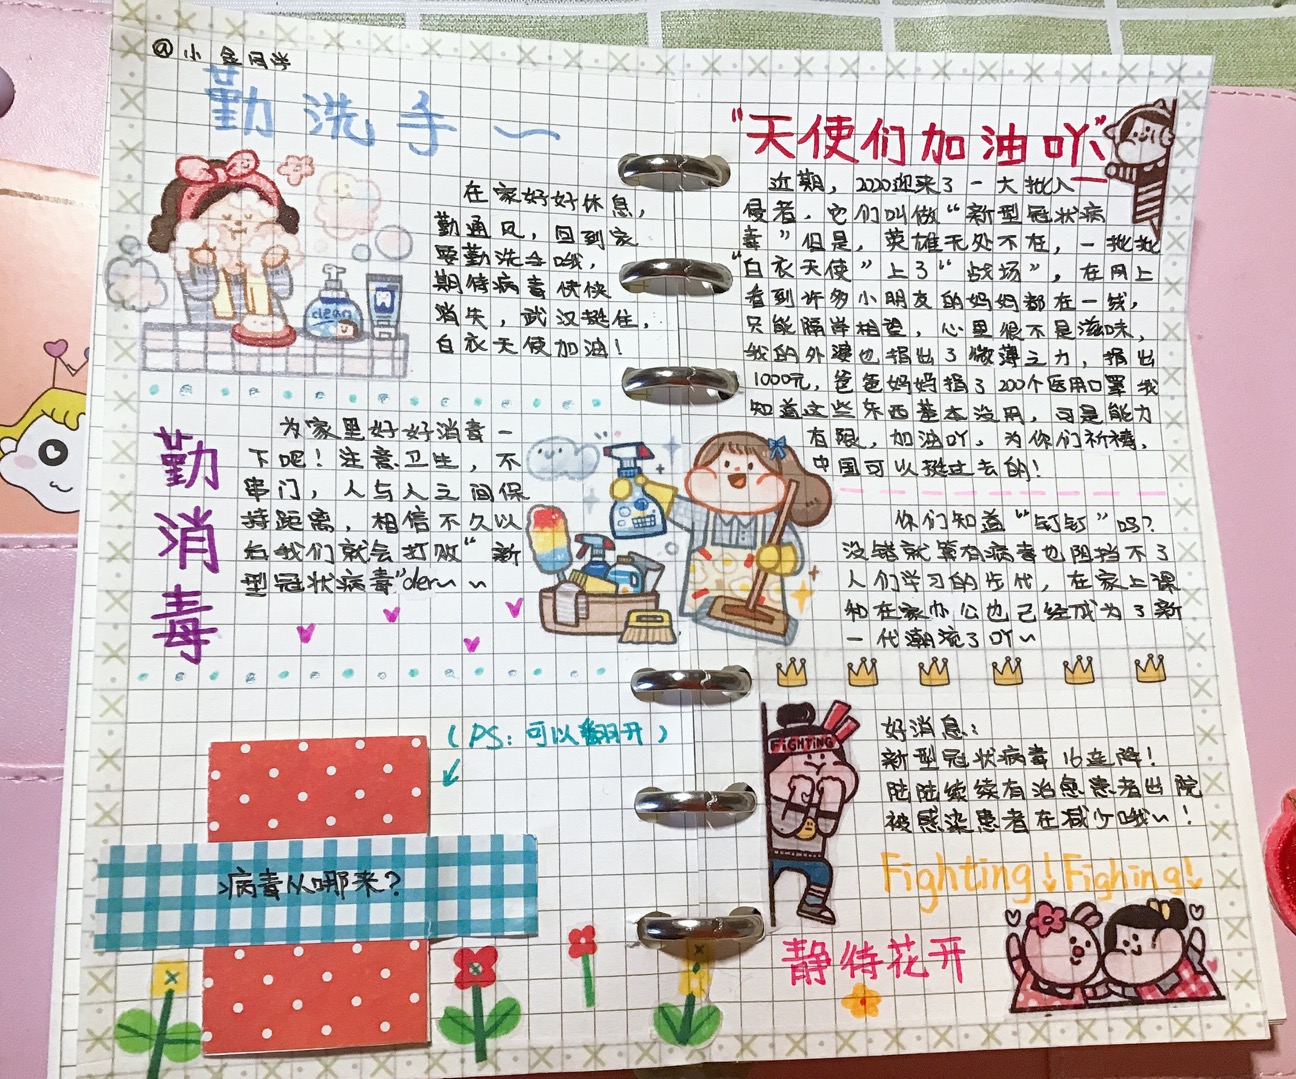 @小金同学
勤洗手~
在家好好休息，
勤通风，回到家
要勤洗手哦，
期待病毒快快
消失，武汉挺住，
白衣天使加油！
clean
勤消毒
为家里好好消毒一
下吧！注意卫生，不
串门，人与人之间保
持距离，相信不久以
后我们就会打败“新
型冠状病毒”der~~
(PS：可以翻开)
>病毒从哪来？
“天使们加油吖”
近期，2020迎来了一大批入
侵者，它们叫做“新型冠状病
毒”但是，英雄无处不在，一批批
“白衣天使”上了“战场”，在网上
看到许多小朋友的妈妈都在一线，
只能隔岸相望，心里很不是滋味，
我的外婆也捐出了微薄之力，捐出
1000元，爸爸妈妈捐了200个医用口罩我
知道这些东西基本没用，可是能力
有限，加油吖，为你们祈祷，
中国可以挺过去的！
你们知道“钉钉”吗？
没错就算有病毒也阻挡不了
人们学习的步伐，在家上课
和在家办公也已经成为了新
一代潮流了吖~
FiGHTiNG
好消息：
新型冠状病毒16连降！
陆陆续续有治愈患者出院
被感染患者在减少哦~！
Fighting！Fighing！
静待花开